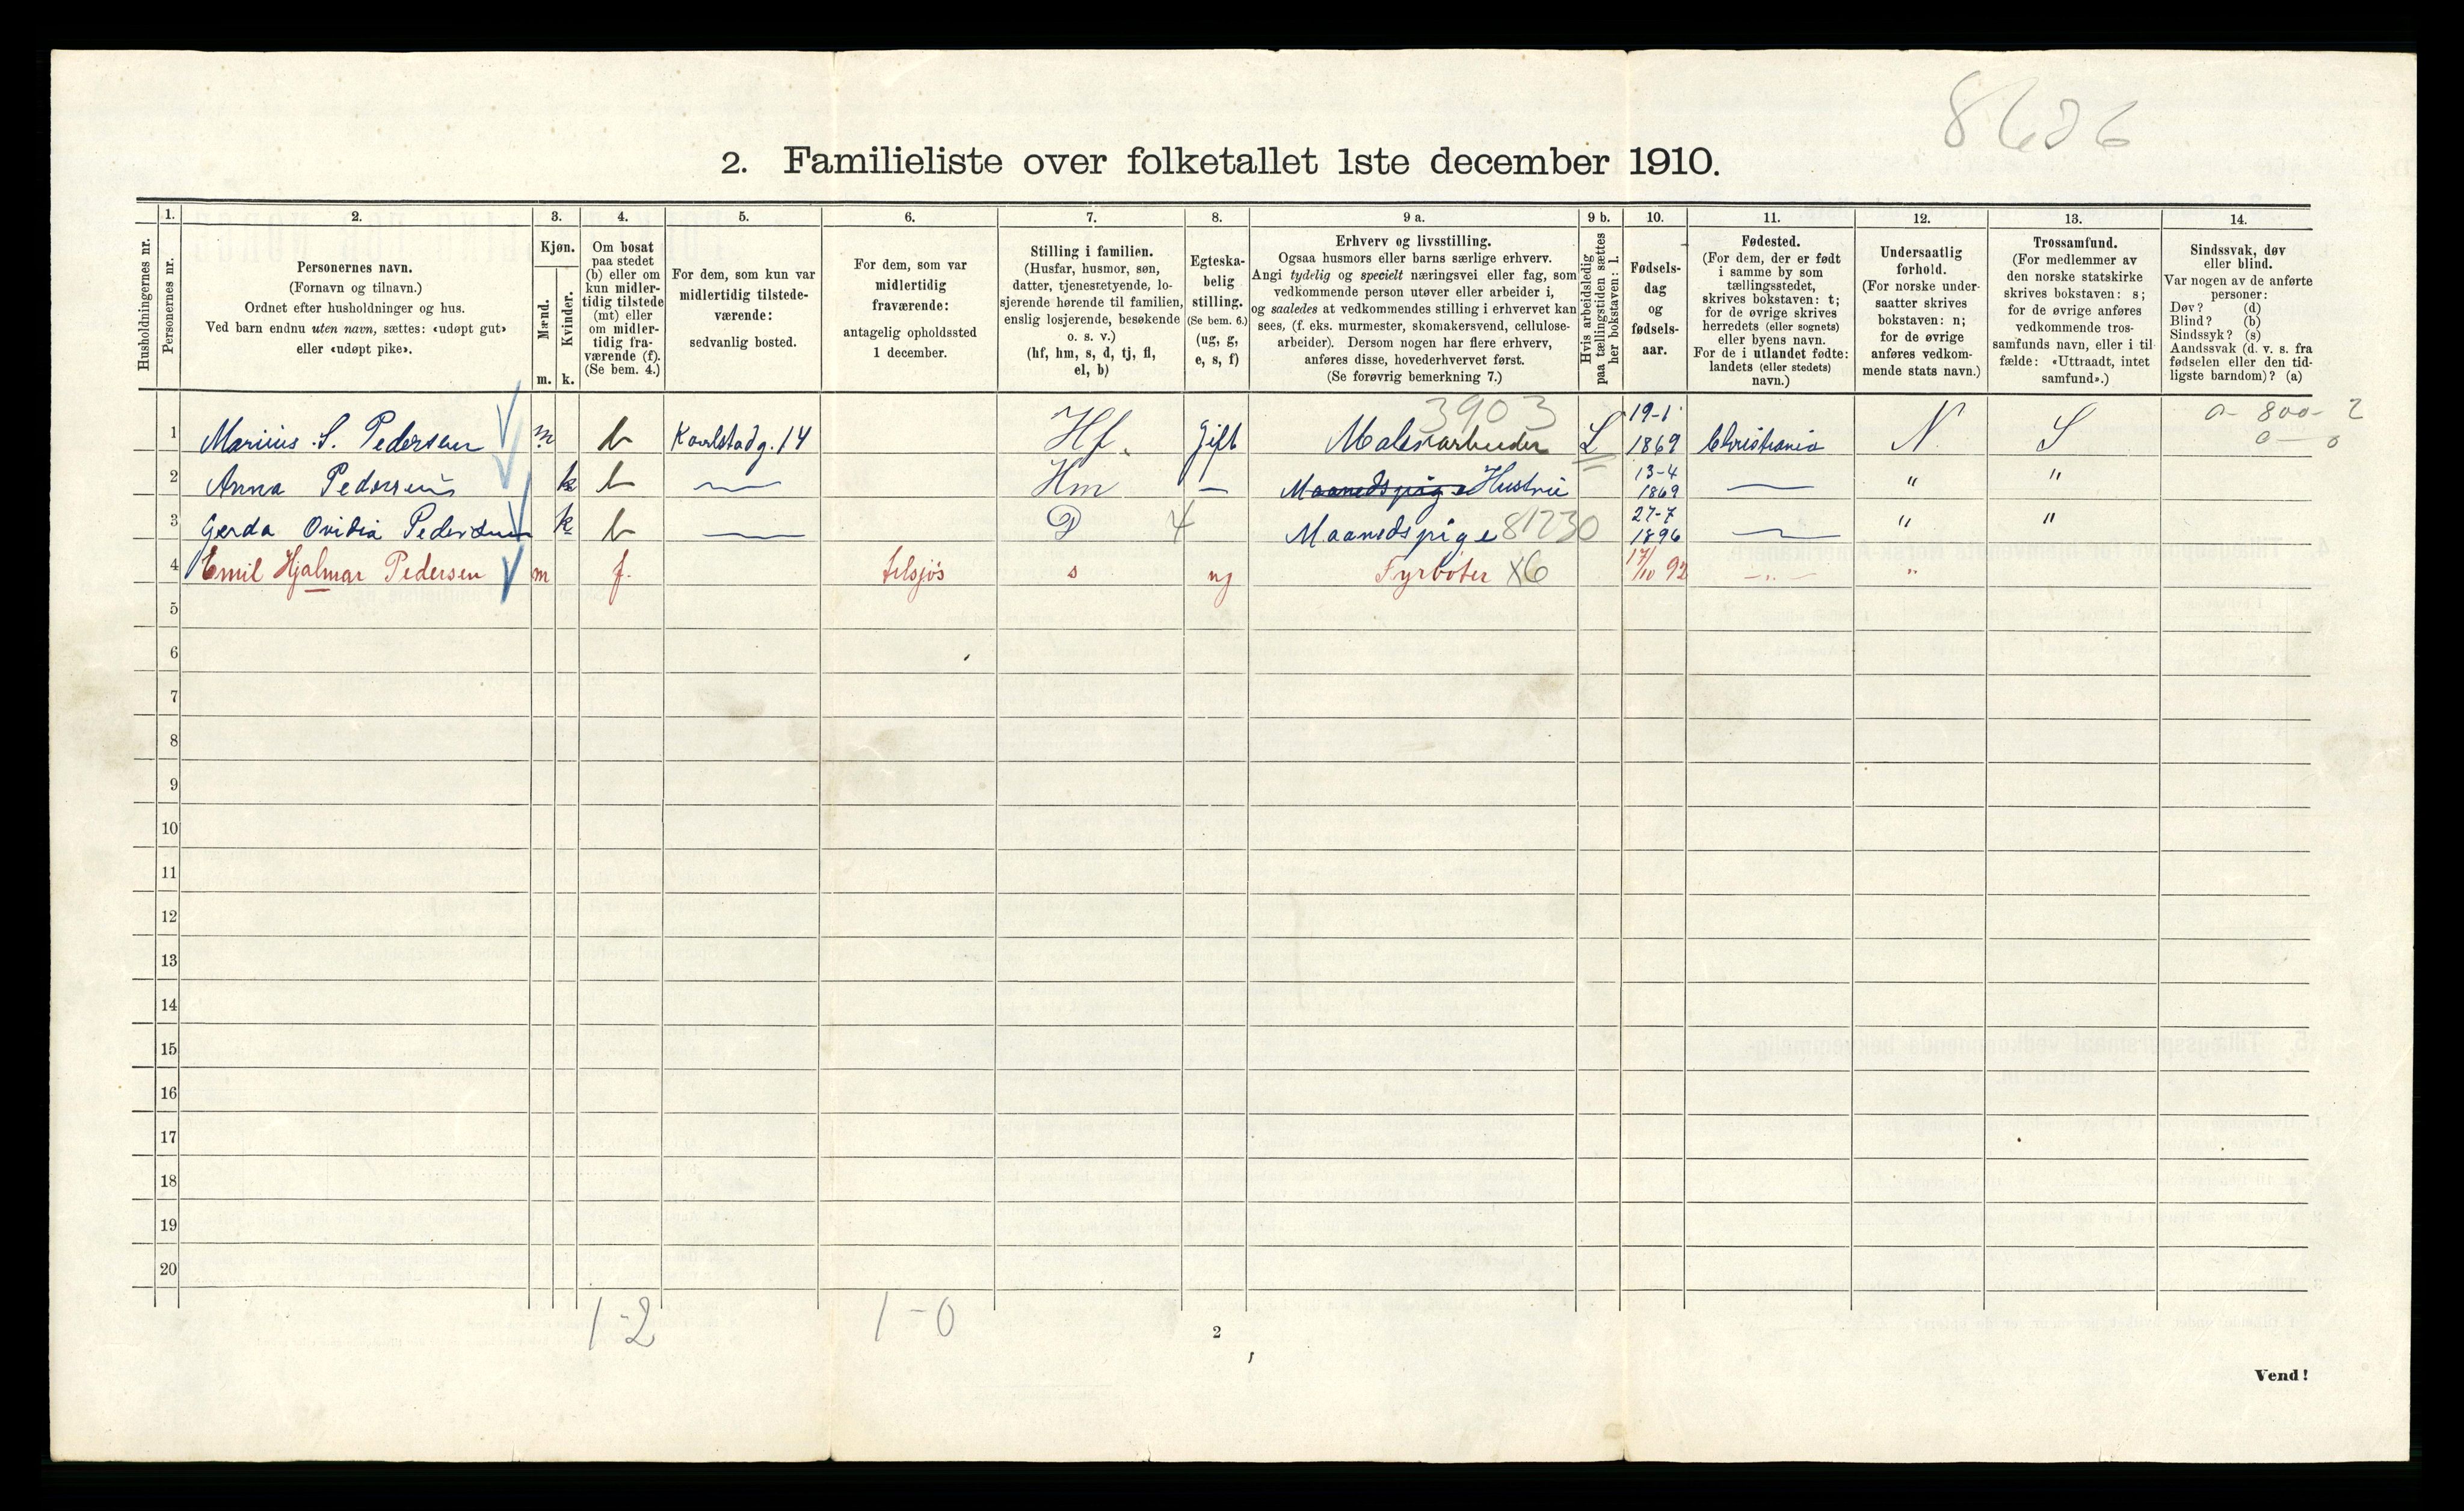 8626
2. Familieliste over folketallet 1ste december 1910.
Husholdningernes nr.
1.
Personernes nr.
2.
Personernes navn.
(Fornavn og tilnavn.)
Ordnet efter husholdninger og hus.
Ved barn endnu uten navn, sættes: «udøpt gut»
eller «udøpt pike».
3.
Kjøn.
Mænd.
Kvinder.
m. k.
4.
Om bosat
paa stedet
(b) eller om
kun midler-
tidig tilstede
(mt) eller
om midler-
tidig fra-
værende (f).
(Se bem. 4.)
5.
For dem, som kun var
midlertidig tilstede-
værende:
sedvanlig bosted.
6.
For dem, som var
midlertidig
fraværende:
antagelig opholdssted
1 december.
7.
Stilling i familien.
(Husfar, husmor, søn,
datter, tjenestetyende, lo-
sjerende hørende til familien,
enslig losjerende, besøkende
o. s. v.)
(hf, hm, s, d, tj, fl,
el, b)
8.
Egteska-
belig
stilling.
(Se bem. 6.)
(ug, g,
e, s, f)
9 a.
Erhverv og livsstilling.
Ogsaa husmors eller barns særlige erhverv.
Angi tydelig og specielt næringsvei eller fag, som
vedkommende person utøver eller arbeider i,
og saaledes at vedkommendes stilling i erhvervet kan
sees, (f. eks. murmester, skomakersvend, cellulose-
arbeider). Dersom nogen har flere erhverv,
anføres disse, hovederhvervet først.
(Se forøvrig bemerkning 7.)
9 b.
Hvis arbeidsledig
paa tællingstiden sættes
her bokstaven: l.
10.
Fødsels-
dag
og
fødsels-
aar.
11.
Fødested.
(For dem, der er født
i samme by som
tællingsstedet,
skrives bokstaven: t;
for de øvrige skrives
herredets (eller sognets)
eller byens navn.
For de i utlandet fødte:
landets (eller stedets)
navn.)
12.
Undersaatlig
forhold.
(For norske under-
saatter skrives
bokstaven: n;
for de øvrige
anføres vedkom-
mende stats navn.)
13.
Trossamfund.
(For medlemmer av
den norske statskirke
skrives bokstaven: s;
for de øvrige anføres
vedkommende tros-
samfunds navn, eller i til-
fælde: «Uttraadt, intet
samfund».)
14.
Sindssvak, døv
eller blind.
Var nogen av de anførte
personer:
Døv? (d)
Blind? (b)
Sindssyk? (s)
Aandssvak (d. v. s. fra
fødselen eller den tid-
ligste barndom)? (a)
3903 0- 800- 2
1 Marius S. Pedersen m b Karlstadg. 14 Hf. Gift Malerarbeider L 19-1 1869 Christiania N. S 0 — 0
2 Anna Pedersen k b — Hm — Maanedspige Hustru 13-4 1869 — " "
3 Gerda Ovidia Pedersen k b — D 4 Maanedspige 81230 27-7 1896 — " "
4 Emil Hjalmar Pedersen m f. tilsjøs s ug Fyrbøter X6 17/10 92 —"— "
5
6
7
8
9
10
11
12
13
14
15
16
17
18
19
20
1-2 1-0
2
Vend!